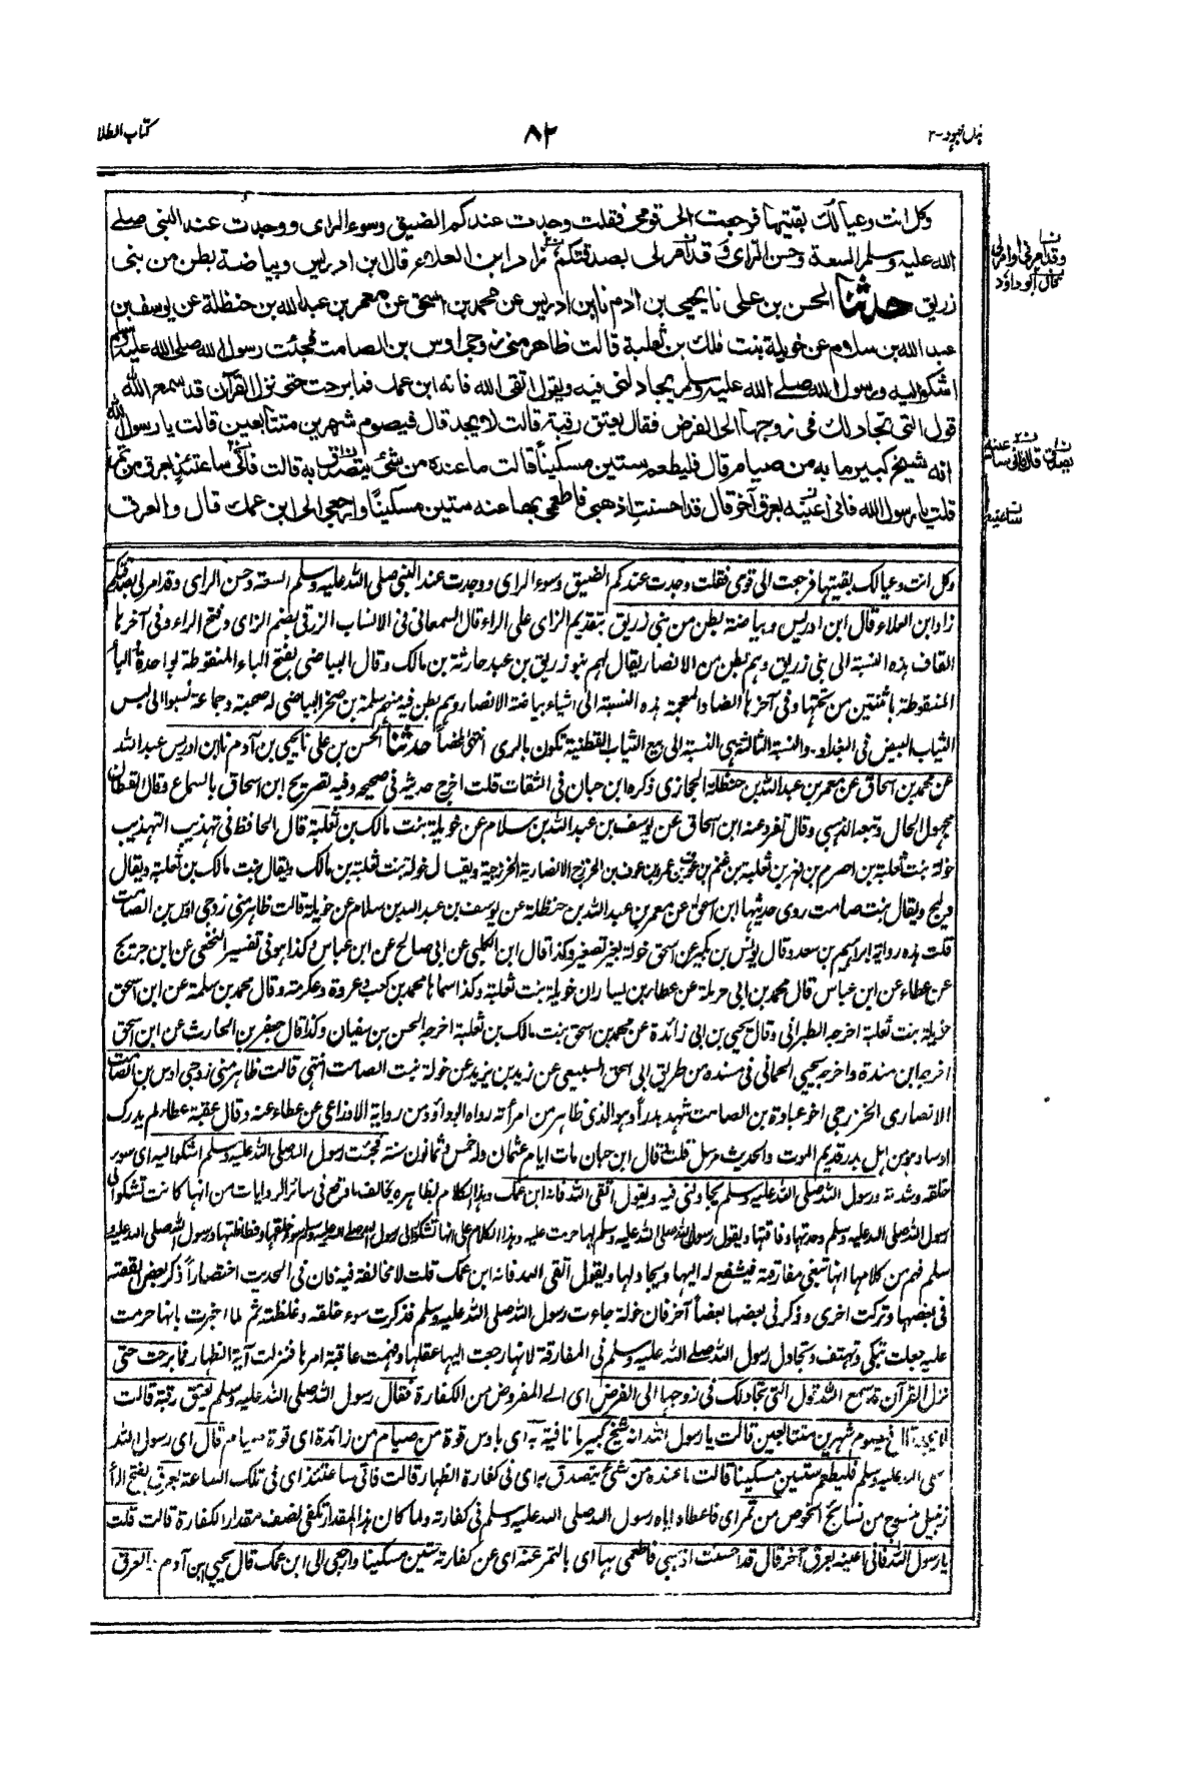 كتاب الطلا
٨٢
بذل المجهود-٣
وكل انت وعيالك بقيتها فرجعت الى قومى فقلت وجدت عندكم الضيق وسوء الراى ووجدت عند النبى صلے
الله عليه وسلم السعة وحسن الراى وقد امر لى بصدقتكم زاد ابن العلاء قال ابن ادريس وبياضة بطن من بنى
زريق حدثنا الحسن بن على نا يحيى بن ادم نا ابن ادريس عن محمد بن اسحق عن معمر بن عبد الله بن حنظلة عن يوسف بن
عبد الله بن سلام عن خويلة بنت ملك بن ثعلبة قالت ظاهر منى زوجى اوس بن الصامت فجئت رسول الله صلى الله عليه وسلم
اشكو اليه ورسول الله صلے الله عليه وسلم يجادلنى فيه ويقول اتقى الله فانه ابن عمك فما برحت حتى نزل القرآن قد سمع الله
قول التى تجادلك فى زوجها الى الفرض فقال يعتق رقبة قالت لا يجد قال فيصوم شهرين متتابعين قالت يا رسول الله
انه شيخ كبير ما به من صيام قال فليطعم ستين مسكيناً قالت ما عنده من شئ يتصدق به قالت فاتى ساعتئذٍ بعرق من تمر
قلت يا رسول الله فانى اعينه بعرق آخر قال قد احسنتِ اذهبى فاطعمى بها عنه ستين مسكيناً وارجعى الى ابن عمك قال والعرق
وقد امرنى او امر لى
قال ابو داؤد
ساعتئذ
وكل انت وعيالك بقيتها فرجعت الى قومى فقلت وجدت عندكم الضيق وسوء الراى ووجدت عند النبى صلى الله عليه وسلم السعة وحسن الراى وقد امر لى بصدقتكم
زاد ابن العلاء قال ابن ادريس وبياضة بطن من بنى زريق بتقديم الزاى على الراء قال السمعانى فى الانساب الزرقى بضم الزاى وفتح الراء وفى آخرها
القاف هذه النسبة الى بنى زريق وهم بطن من الانصار يقال لهم بنو زريق بن عبد حارثة بن مالك وقال البياضى بفتح الباء المنقوطة بواحدة والياء
المنقوطة باثنتين من تحتها وفى آخرها الضاد المعجمة هذه النسبة الى اشياء بياضة الانصار وهم بطن فيه منهم سلمة بن صخر البياضى له صحبة وجماعة نسبوا الى لبس
الثياب البيض فى بغداد والنسبة الثالثة هى النسبة الى بيع الثياب القطنية تكون بالرى انتهى ملخصاً حدثنا الحسن بن على نا يحيى بن آدم نا ابن ادريس عبد الله
عن محمد بن اسحاق عن معمر بن عبد الله بن حنظلة الحجازى ذكره ابن حبان فى الثقات قلت اخرج حديثه فى صحيحه وفيه تصريح ابن اسحاق بالسماع وقال القطان
مجهول الحال وتبعه الذهبى وقال تفرد عنه ابن اسحاق عن يوسف بن عبد الله بن سلام عن خويلة بنت مالك بن ثعلبة قال الحافظ فى تهذيب التهذيب
خولة بنت ثعلبة بن اصرم بن فهر بن ثعلبة بن غنم بن عوف بن عمرو بن عوف بن الخزرج الانصارية الخزرجية ويقال خولة بنت ثعلبة بن مالك ويقال بنت مالك بن ثعلبة ويقال
دليج ويقال بنت صامت روى حديثها ابن اسحق عن معمر بن عبد الله بن حنظلة عن يوسف بن عبد الله بن سلام عن خويلة قالت ظاهر منى زوجى اوس بن الصامت
قلت هذه رواية ابراهيم بن سعد وقال يونس بن بكير عن اسحق خولة بغير تصغير وكذا قال ابن الكلبى عن ابى صالح عن ابن عباس وكذا هو فى تفسير النخعى عن ابن جريج
عن عطاء عن ابن عباس قال محمد بن ابى حرملة عن عطاء بن يسار ان خويلة بنت ثعلبة وكذا سماها محمد بن كعب وعروة وعكرمة وقال محمد بن سلمة عن ابن اسحق
خويلة بنت ثعلبة اخرجه الطبرانى وقال يحيى بن ابى زائدة عن محمد بن اسحق بنت مالك بن ثعلبة اخرجه الحسن بن سفيان وكذا قال جعفر بن الحارث عن ابن اسحق
اخرجه ابن مندة واخرجه يحيى الحمانى فى مسنده من طريق ابى اسحق السبيعى عن زيد بن يزيد عن خولة بنت الصامت انتهى قالت ظاهر منى زوجى اوس بن الصامت
الانصارى الخزرجى اخو عبادة بن الصامت شهد بدرا وهو الذى ظاهر من امرأته رواه ابو داؤد من رواية الاوزاعى عن عطاء عنه وقال عقبة عطاء لم يدرك
اوسا وهو من اهل بدر قديم الموت والحديث مرسل قلت قال ابن حبان مات ايام عثمان وله خمس وثمانون سنة فجئت رسول الله صلى الله عليه وسلم اشكو اليه اى سوء
خلقه وشدته ورسول الله صلى الله عليه وسلم يجادلنى فيه ويقول اتقى الله فانه ابن عمك وهذا الكلام بظاهره يخالف ما وقع فى سائر الروايات من انها كانت تشكو الى
رسول الله صلى الله عليه وسلم وحدتها وفاقتها ويقول رسول الله صلى الله عليه وسلم لها حرمت عليه وهذا الكلام على انها تشكو الى رسول الله صلى الله عليه وسلم سوء خلقها وفظاظتها ورسول الله صلى الله عليه و
سلم فهم من كلامها انها تبغى مفارقته فيشفع له اليها ويجادلها ويقول اتقى الله فانه ابن عمك قلت لا مخالفة فيه فان فى الحديث اختصاراً ذكر بعض القصة
فى بعضها وتركت اخرى وذكر فى بعضها بعضاً آخر فان خولة جاءت رسول الله صلى الله عليه وسلم فذكرت سوء خلقه وغلظته ثم لما اخبرت بانها حرمت
عليه جعلت تبكى وتهتف وتجادل رسول الله صلے الله عليه وسلم فى المفارقة لانها رجعت اليها عقلها وفهمت عاقبة امرها فنزلت آية الظهار فما برحت حتى
نزل القرآن قد سمع الله قول التى تجادلك فى زوجها الى الفرض اى الى المفروض من الكفارة فقال رسول الله صلى الله عليه وسلم يعتق رقبة قالت
لا يجد قال فيصوم شهرين متتابعين قالت يا رسول الله انه شيخ كبير ما نافية به اى باوس قوة من صيام من زائدة اى قوة صيام قال اى رسول الله
صلى الله عليه وسلم فليطعم ستين مسكينا قالت ما عنده من شئ يتصدق به اى فى كفارة الظهار قالت فاتى ساعتئذ اى فى تلك الساعة بعرق بفتح الراء
زنبيل منسوج من نسائج الخوص من تمر اى فاعطاه اياه رسول الله صلى الله عليه وسلم فى كفارته ولما كان هذا المقدار تكفى لنصف مقدار الكفارة قالت قلت
يا رسول الله فانى اعينه بعرق آخر قال قد احسنت اذهبى فاطعمى بها اى بالتمر عنه اى عن كفارته ستين مسكينا وارجعى الى ابن عمك قال يحيى بن آدم والعرق